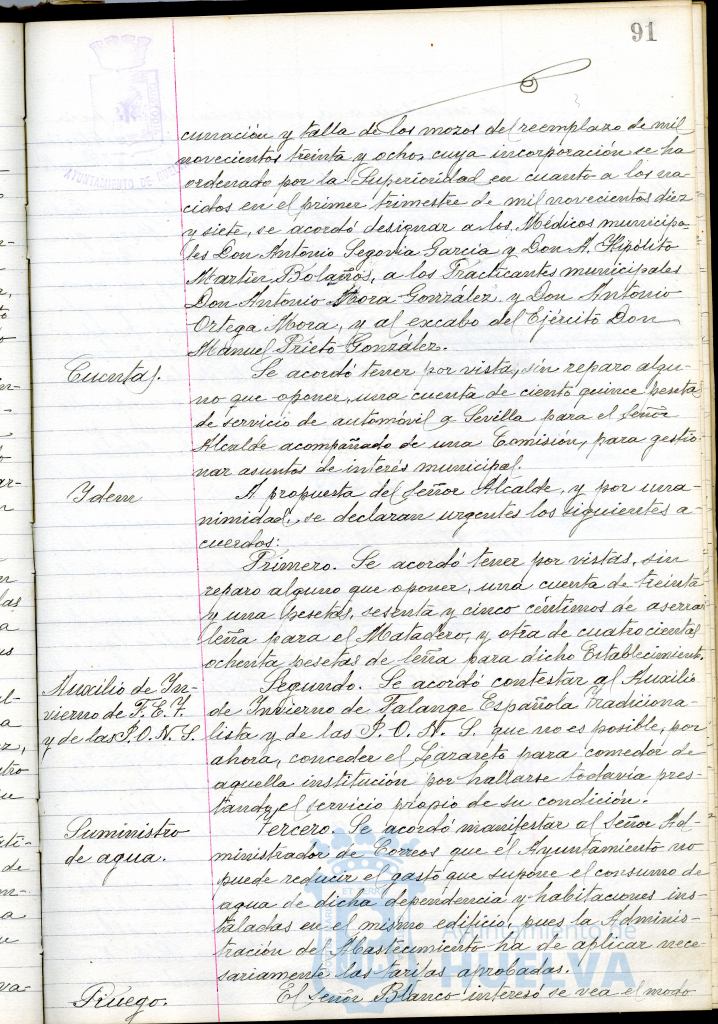 91
AYUNTAMIENTO DE
cunación y talla de los mozos del reemplazo de mil
novecientos treinta y ocho, cuya incorporación se ha
ordenado por la Superioridad en cuanto a los na-
cidos en el primer trimestre de mil novecientos diez
y siete, se acordó designar a los Médicos municipa-
les Don Antonio Segovia García y Don A. Hipólito
Martín Bolaños, a los Practicantes municipales
Don Antonio Mora González y Don Antonio
Ortega Mora, y al excabo del Ejército Don
Manuel Prieto González.
Cuentas.
Se acordó tener por vista, sin reparo algu-
no que oponer, una cuenta de ciento quince pesetas
de servicio de automóvil a Sevilla para el Señor
Alcalde acompañado de una Comisión, para gestio-
nar asuntos de interés municipal.
Idem
A propuesta del Señor Alcalde, y por una-
nimidad, se declaran urgentes los siguientes a-
cuerdos:
Primero. Se acordó tener por vistas, sin
reparo alguno que oponer, una cuenta de treinta
y una pesetas, sesenta y cinco céntimos de aserrar
leña para el Matadero, y otra de cuatrocientas
ochenta pesetas de leña para dicho Establecimiento.
Auxilio de In-
vierno de F. E. T.
y de las J. O. N. S.
Segundo. Se acordó contestar al Auxilio
de Invierno de Falange Española Tradiciona-
lista y de las J. O. N. S. que no es posible, por
ahora, conceder el Lazareto para comedor de
aquella institución por hallarse todavía pres-
tando el servicio propio de su condición.
Suministro
de agua.
Tercero. Se acordó manifestar al Señor Ad-
ministrador de Correos que el Ayuntamiento no
puede reducir el gasto que supone el consumo de
agua de dicha dependencia y habitaciones ins-
taladas en el mismo edificio, pues la Adminis-
tración del Abastecimiento ha de aplicar nece-
sariamente las tarifas aprobadas.
Ruego.
El Señor Blanco interesó se vea el modo
Ayuntamiento de
HUELVA